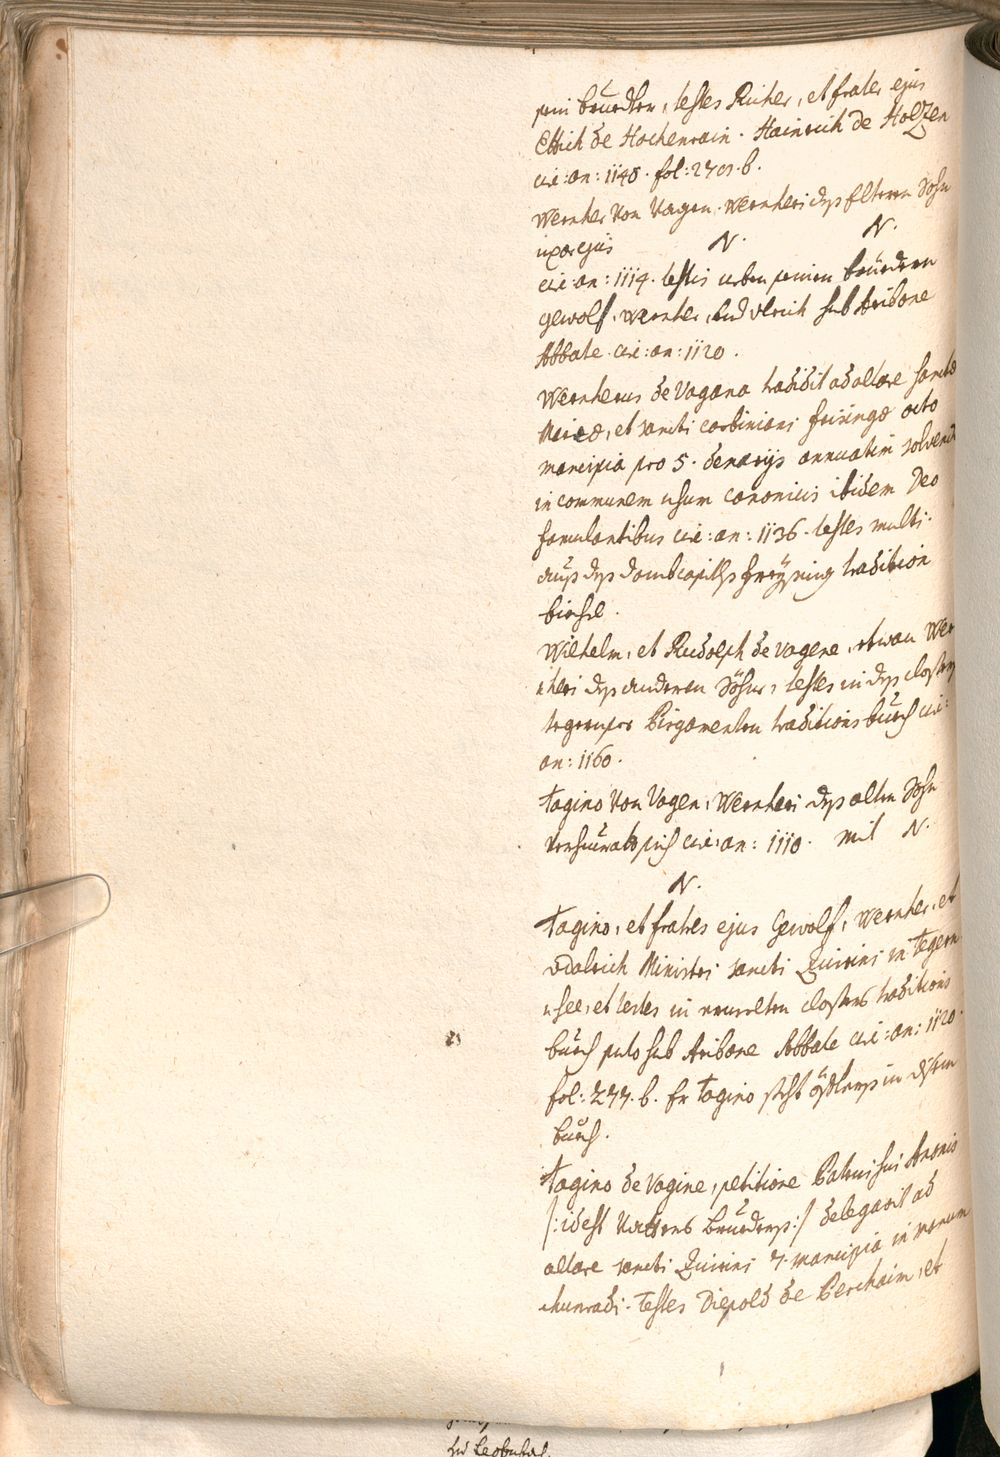 sein bruedern, testes Richer, et frater ejus
Ettich de Hochenrain. Hainrich de Holzen
circ: an: 1140. fol: 270. b.
Wernher von Vagen. Wernheri dess elteren Sohn
uxor ejus N. N.
circ: an: 1114. testis neben seinen bruedern
gewolf, Wernher, und Ulrich sub Aribone
Abbate circ: an: 1120.
Wernherus de Vagana tradidit ad altare sanctæ
Mariæ, et sancti corbiniani frisingæ octo
mancipia pro 5. denarijs annuatim solvend
in communem usum canonicis ibidem Deo
famulantibus circ: an: 1136. testes multi.
auss dess dombcapitlss freysing tradition
buechl.
Wilhelm, et Rudolph de vagene, etwan Wer
nheri dess anderen Söhne, testes in dess closters
tegernsee Pirgamenten traditions buech circ:
an: 1160.
Tagino von Vagen, Wernheri dess alten Sohn
verheurath sich circ: an: 1110. mit N.
N.
Tagino, et fratres ejus Gewolf, Wernher, et
Odalrich Ministri sancti Quirini in Tegern
see, et testes in uralten closters traditions
buech puto sub Aribone Abbate circ: an: 1120.
fol: 277. b. Er Tagino steht öftters in disem
buech.
Tagino de Vagine, petitione Patrui sui Aronis
/: id est Vatters Brueders :/ delegavit ad
altare sancti Quirini 7. mancipia in manum
chunradi. Testes Diepold de Perchaim, et
zu Leobnbach.